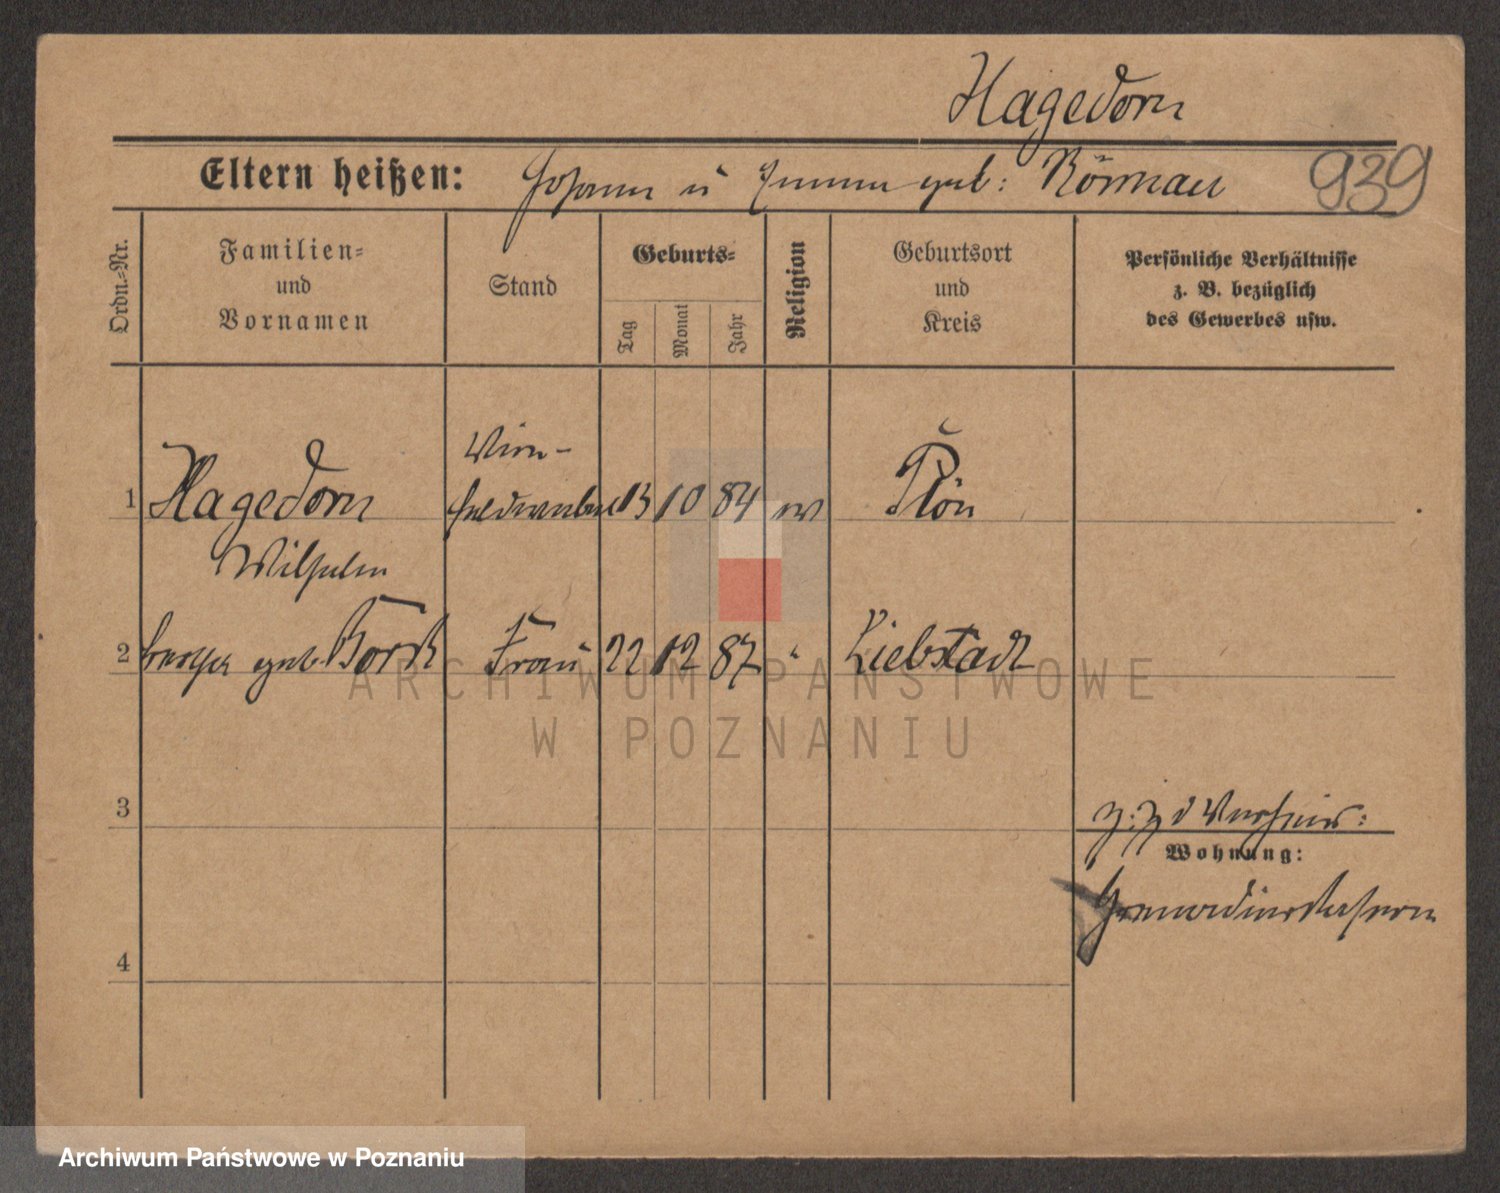 Hagedorn
Eltern heißen: Johann u Emma geb: Römnau 939
Ordn.-Nr.
Familien-
und
Vornamen
Stand
Geburts-
Tag
Monat
Jahr
Religion
Geburtsort
und
Kreis
Persönliche Verhältnisse
z. B. bezüglich
des Gewerbes usw.
1 Hagedorn 13 10 84 ev Plön
Wilhelm
2 geb. Borck Frau 22 12 87 " Liebstadt
3
Wohnung:
Grenadierkaserne
4
ARCHIWUM PAŃSTWOWE
W POZNANIU
Archiwum Państwowe w Poznaniu